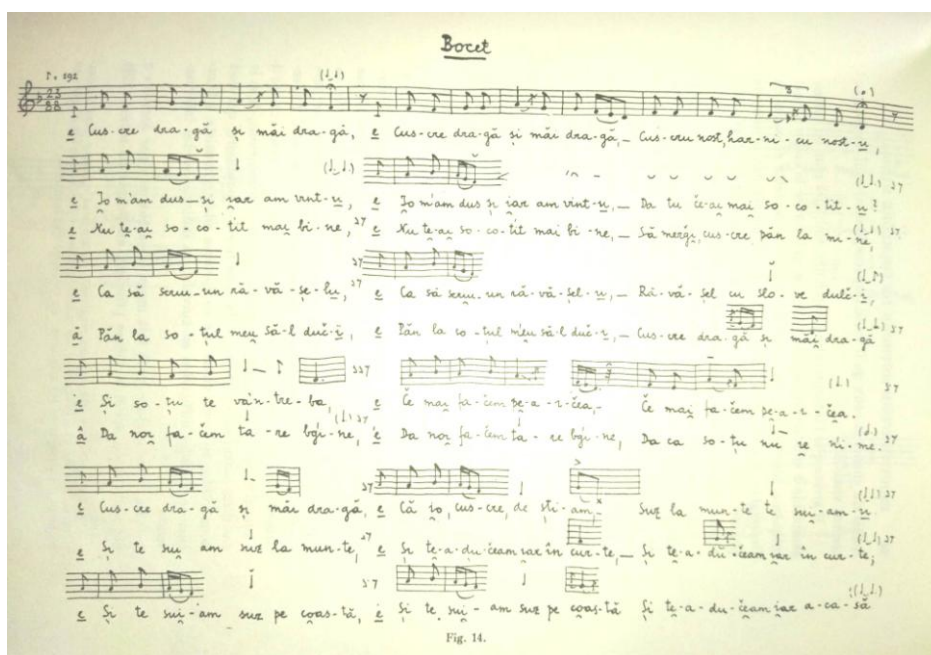 Bocet
♪ = 192
e Cus-cre dra-gă și măi dra-gă, e Cus-cre dra-gă și măi dra-gă,— Cus-cru nost, har-ni-cu nost-u,
e Io m'am dus—și iar am vint-u, e Io m'am dus și iar am vint-u,— Da tu c̆e-ai mai so-co-tit-u?
e Nu te-ai so-co-tit mai bi-ne, e Nu te-ai so-co-tit mai bi-ne,— Să mergi, cus-cre păn la mi-ne,
e Ca să scriu-un ră-vă-șe-lu, e Ca să scriu-un ră-vă-șel-u,— Ră-vă-șel cu slo-ve dulc̆-i,
ă Păn la so-țul meu să-l duc̆-i, e Păn la so-țul meu să-l duc̆-i,— Cus-cre dra-gă și măi dra-gă
e Și so-țu te va'n-tre-ba, e C̆e mai fa-c̆em pe-a-i-c̆ea,— C̆e mai fa-c̆em pe-a-i-c̆ea.
â Da noi fa-c̆em ta-re bgi-ne, e Da noi fa-c̆em ta-re bgi-ne, Da ca so-țu nu ie ni-me.
e Cus-cre dra-gă și măi dra-gă, e Că io, cus-cre, de ști-am,— Sus la mun-te te sui-am-u
e Și te sui am sus la mun-te, e Și te-a-du-c̆eam iar în cur-te,— Și te-a-du-c̆eam iar în cur-te;
e Și te sui-am sus pe coas-tă, e Și te sui-am sus pe coas-tă Și te-a-du-c̆eam iar a-ca-să
Fig. 14.